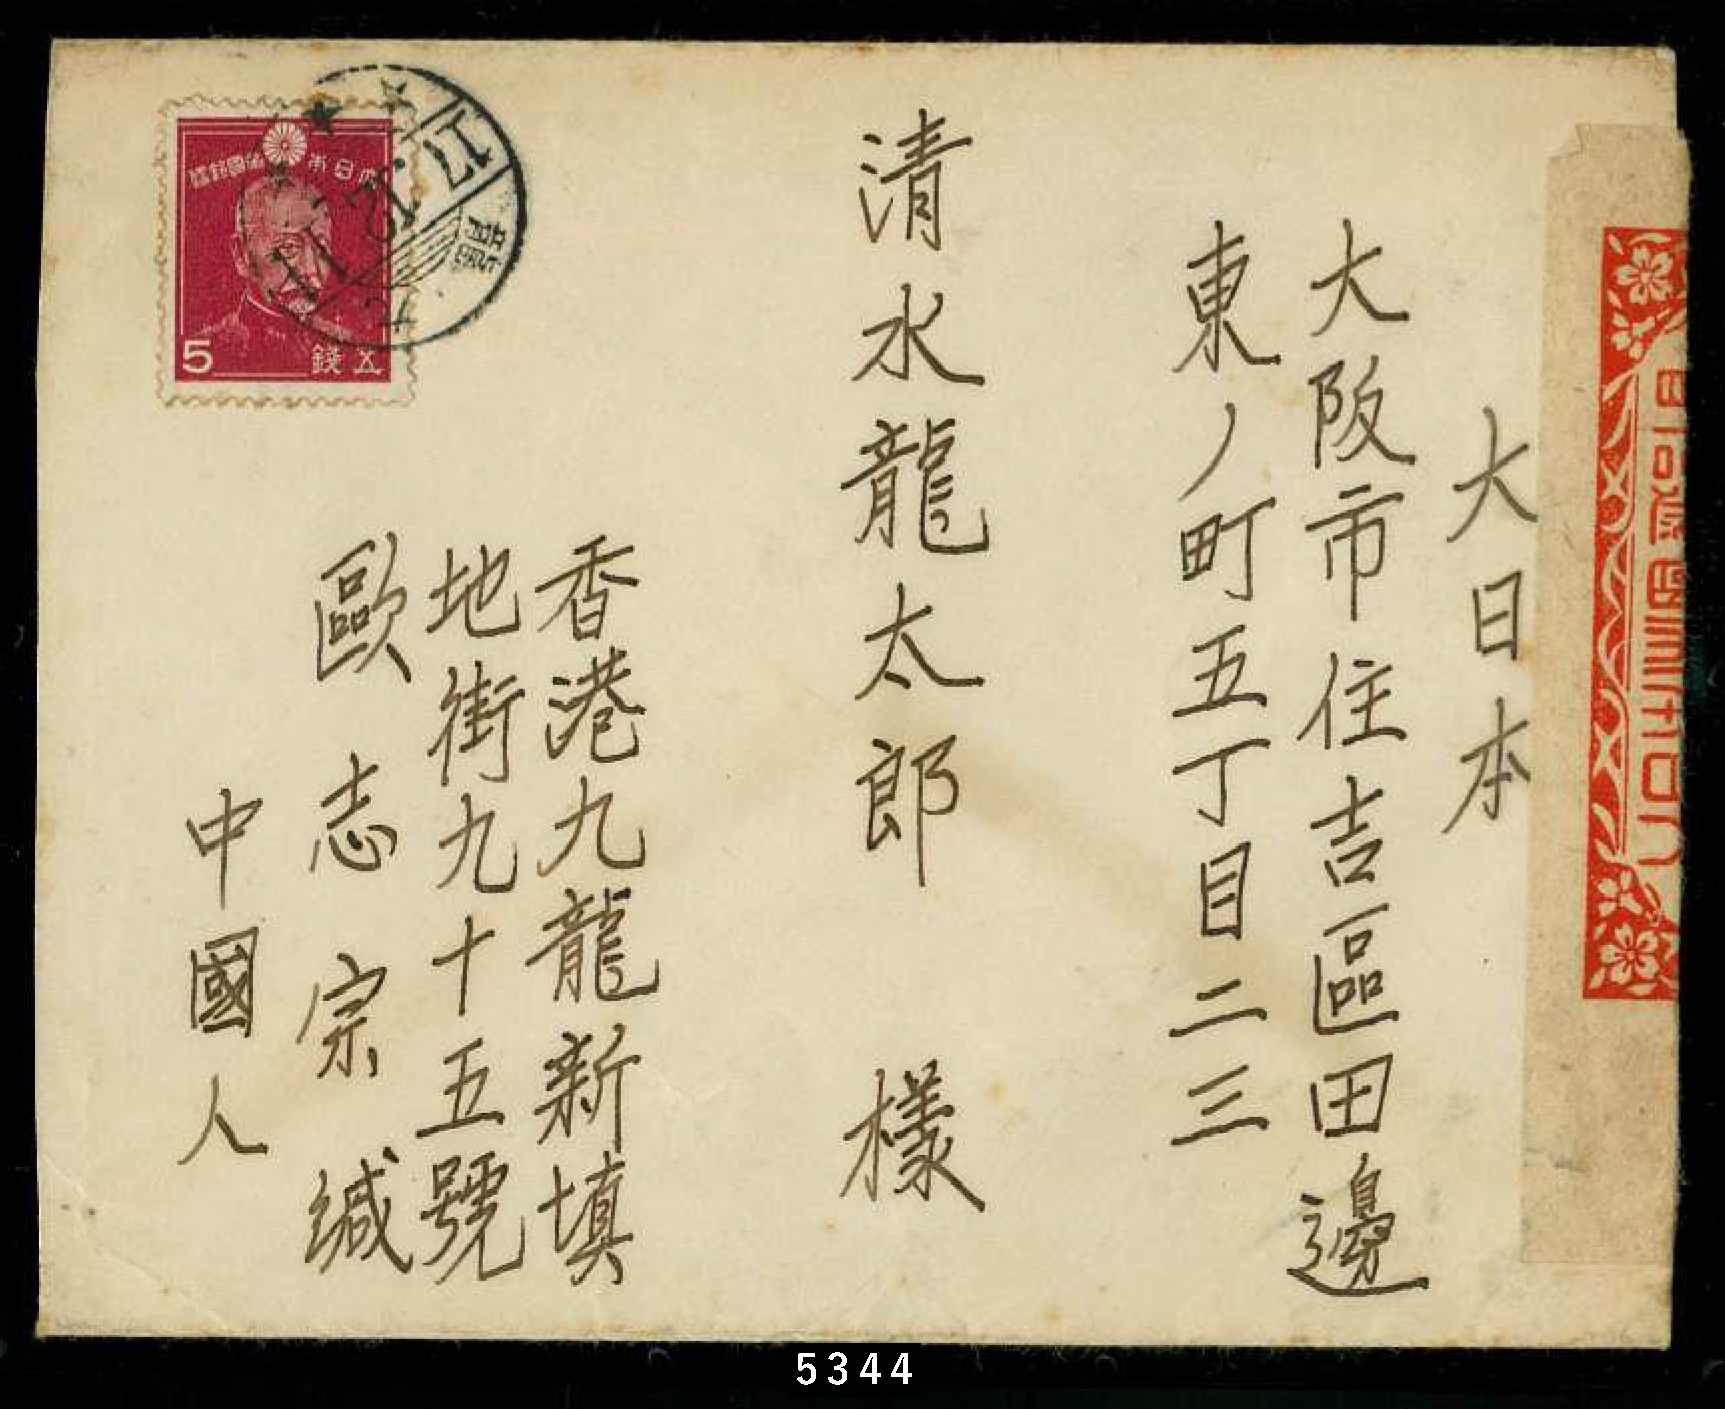 大日本
大阪市住吉區田邊
東ノ町五丁目二三
清水龍太郎 様
香港九龍新填
地街九十五號
歐志宗緘
中國人
大日本帝國郵便
5
五錢
17.12.11
5344